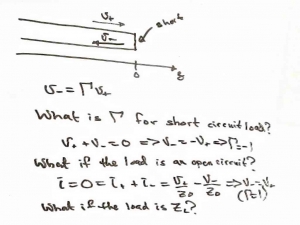 v₊
short
v₋
0
z
v₋ = Γ v₊
What is Γ for short circuit load?
v₊ + v₋ = 0 => v₋ = -v₊ => Γ = -1
What if the load is an open circuit?
i = 0 = i₊ + i₋ = v₊/Z₀ - v₋/Z₀ => v₋ = v₊
(Γ=1)
What if the load is Z_L?